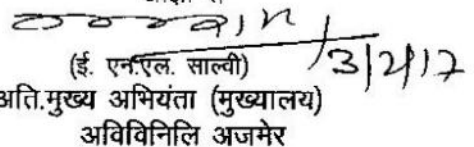 3/2/17
(ई. एन.एल. साल्वी)
अति.मुख्य अभियंता (मुख्यालय)
अविविनिलि अजमेर